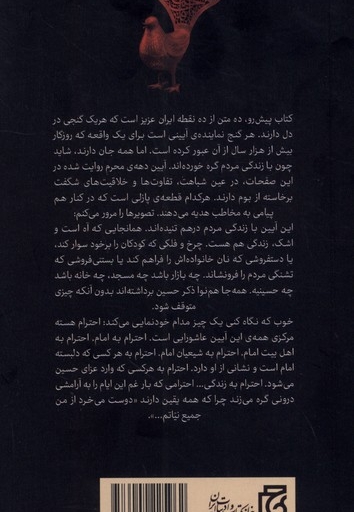 کتاب پیش‌رو، ده متن از ده نقطه ایران عزیز است که هریک گنجی در
دل دارند. هر گنج نماینده‌ی آیینی است برای یک واقعه که روزگار
بیش از هزار سال از آن عبور کرده است. اما همه جان دارند، شاید
چون با زندگی مردم گره خورده‌اند. آیین دهه‌ی محرم روایت شده در
این صفحات، در عین شباهت، تفاوت‌ها و خلاقیت‌های شگفت
برخاسته از بوم دارند. هرکدام قطعه‌ی پازلی است که در کنار هم
پیامی به مخاطب هدیه می‌دهند. تصویرها را مرور می‌کنم:
این آیین با زندگی مردم درهم تنیده‌اند. همانجایی که آه است و
اشک، زندگی هم هست. چرخ و فلکی که کودکان را برخود سوار کند،
یا دستفروشی که نان خانواده‌اش را فراهم کند یا بستنی‌فروشی که
تشنگی مردم را فرونشاند. چه بازار باشد چه مسجد، چه خانه باشد
چه حسینیه. همه‌جا هم‌نوا ذکر حسین برداشته‌اند بدون آنکه چیزی
متوقف شود.
خوب که نگاه کنی یک چیز مدام خودنمایی می‌کند: احترام هسته
مرکزی همه‌ی این آیین عاشورایی است. احترام به امام. احترام به
اهل بیت امام. احترام به شیعیان امام. احترام به هر کسی که دلبسته
امام است و نشانی از او دارد. احترام به هرکسی که وارد عزای حسین
می‌شود. احترام به زندگی... احترامی که بار غم این ایام را به آرامشی
درونی گره می‌زند چرا که همه یقین دارند «دوست می‌خرد از من
جمیع نیّاتم...».